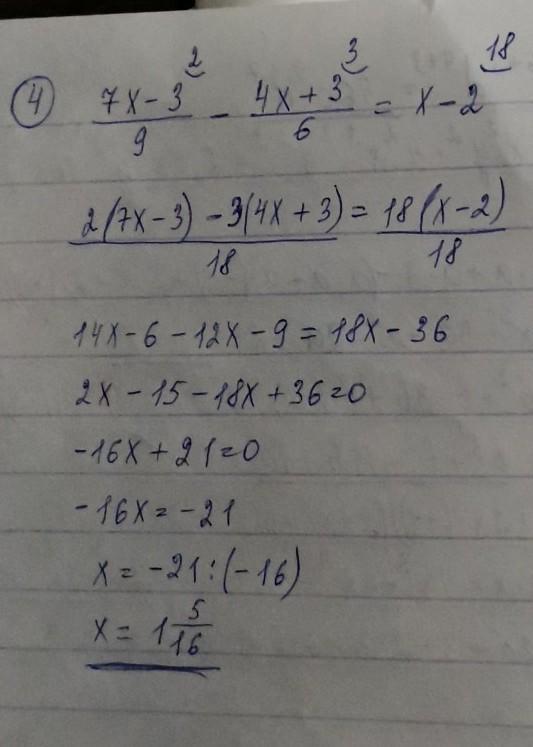 ④ (7x-3)/9 ² - (4x+3)/6 ³ = x-2 ¹⁸
(2(7x-3) - 3(4x+3))/18 = (18(x-2))/18
14x-6-12x-9=18x-36
2x-15-18x+36=0
-16x+21=0
-16x=-21
x=-21:(-16)
x=1 5/16